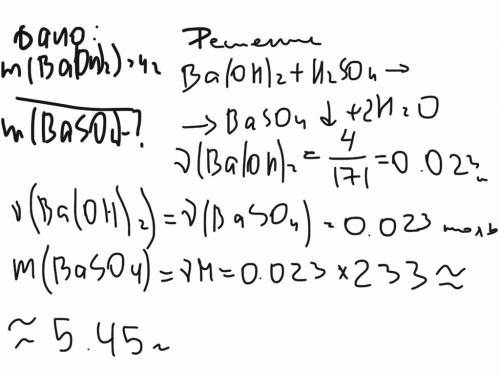 Дано:
m(Ba(OH)2)=4г
m(BaSO4)-?
Решение
Ba(OH)2+H2SO4→
→BaSO4↓+2H2O
ν(Ba(OH)2=4/171=0.023
ν(Ba(OH)2)=ν(BaSO4)=0.023 моль
m(BaSO4)=νM=0.023×233≈
≈5.45г